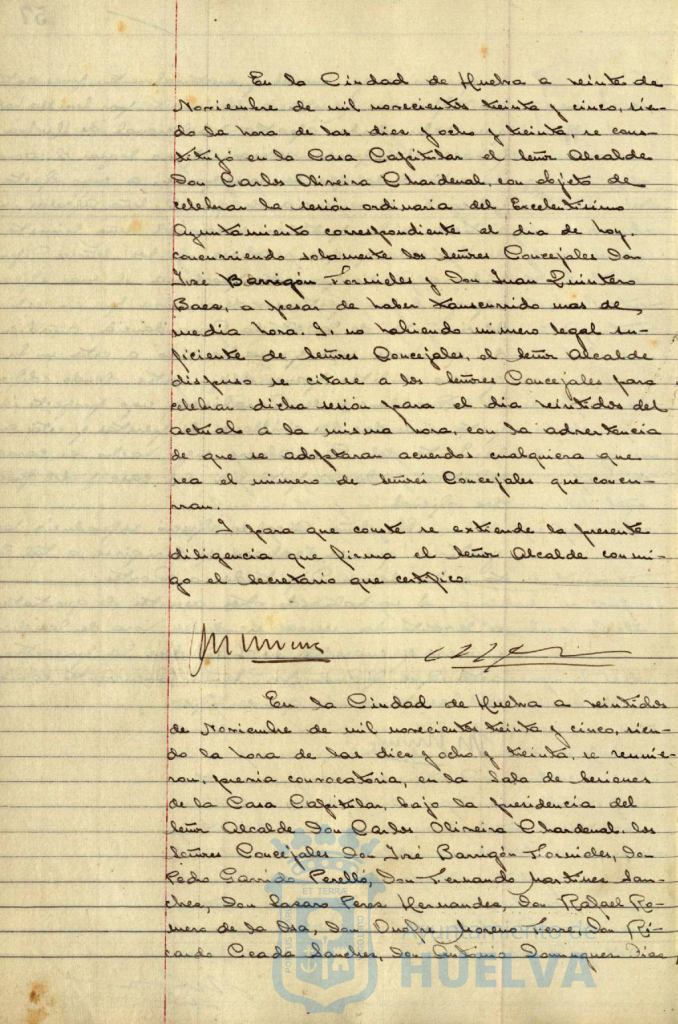 En la Ciudad de Huelva a veinte de
Noviembre de mil novecientos treinta y cinco, sien-
do la hora de las diez y ocho y treinta, se cons-
tituyó en la Casa Capitular el Señor Alcalde
Don Carlos Oliveira Chardenal, con objeto de
celebrar la sesión ordinaria del Excelentísimo
Ayuntamiento correspondiente al dia de hoy,
concurriendo solamente los Señores Concejales Don
José Barrigón Fornieles y Don Juan Quintero
Baez, a pesar de haber transcurrido mas de
media hora. Y, no habiendo número legal su-
ficiente de Señores Concejales, el Señor Alcalde
dispuso se citase a los Señores Concejales para
celebrar dicha sesión para el dia veintidos del
actual a la misma hora, con la advertencia
de que se adoptaran acuerdos cualquiera que
sea el número de Señores Concejales que concu-
rran.
Y para que conste se extiende la presente
diligencia que firma el Señor Alcalde conmi-
go el Secretario que certifico.
En la Ciudad de Huelva a veintidos
de Noviembre de mil novecientos treinta y cinco, sien-
do la hora de las diez y ocho y treinta, se reunie-
ron, previa convocatoria, en la Sala de Sesiones
de la Casa Capitular, bajo la presidencia del
Señor Alcalde Don Carlos Oliveira Chardenal, los
Señores Concejales Don José Barrigón Fornieles, Don
Pedro Garrido Perelló, Don Fernando Martinez San-
chez, Don Lazaro Perez Hernandez, Don Rafael Ro-
mero de la Osa, Don Onofre Moreno Ferre, Don Ri-
cardo Ceada Sanchez, Don Antonio Dominguez Diaz,
Ayuntamiento de
HUELVA